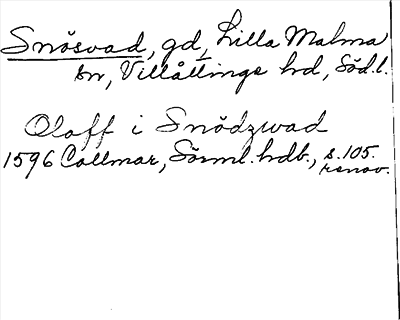 Snösvad, gd, Lilla Malma
sn, Villåttinge hd, Söd.l.
Oloff i Snödzwad
1596 Callmar, Sörml. hdb., s. 105.
renov.